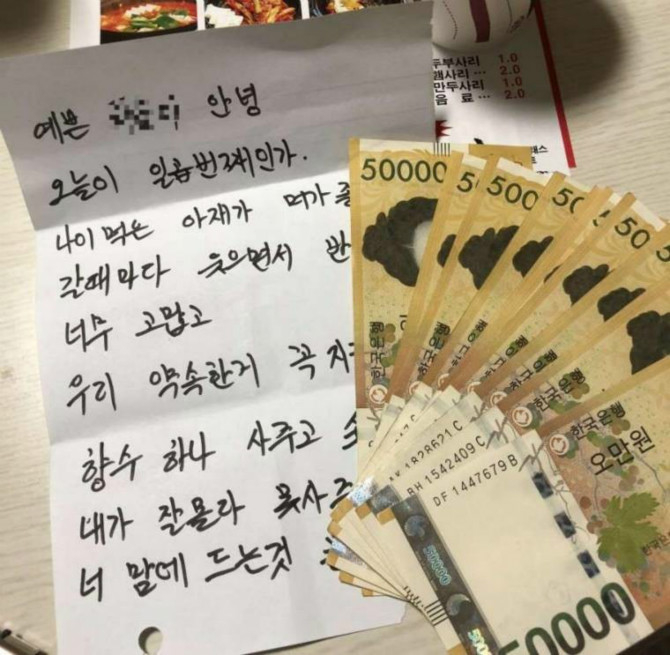 두부사리 1.0
햄사리 ··· 2.0
만두사리 1.0
음 료 ··· 2.0
예쁜 안녕
오늘이 일곱번째인가.
나이먹은 아재가 머가
갈때마다 웃으면서
너무 고맙고
우리 약속한거 꼭
향수 하나 사주고
내가 잘몰라 못사
너 맘에 드는것
50000
500
50
50
한국은행
한국은행
한국은행
한국은행
한국은행
오만원
AK 1828621 C
BH 1542409 C
DF 1447679 B
50000